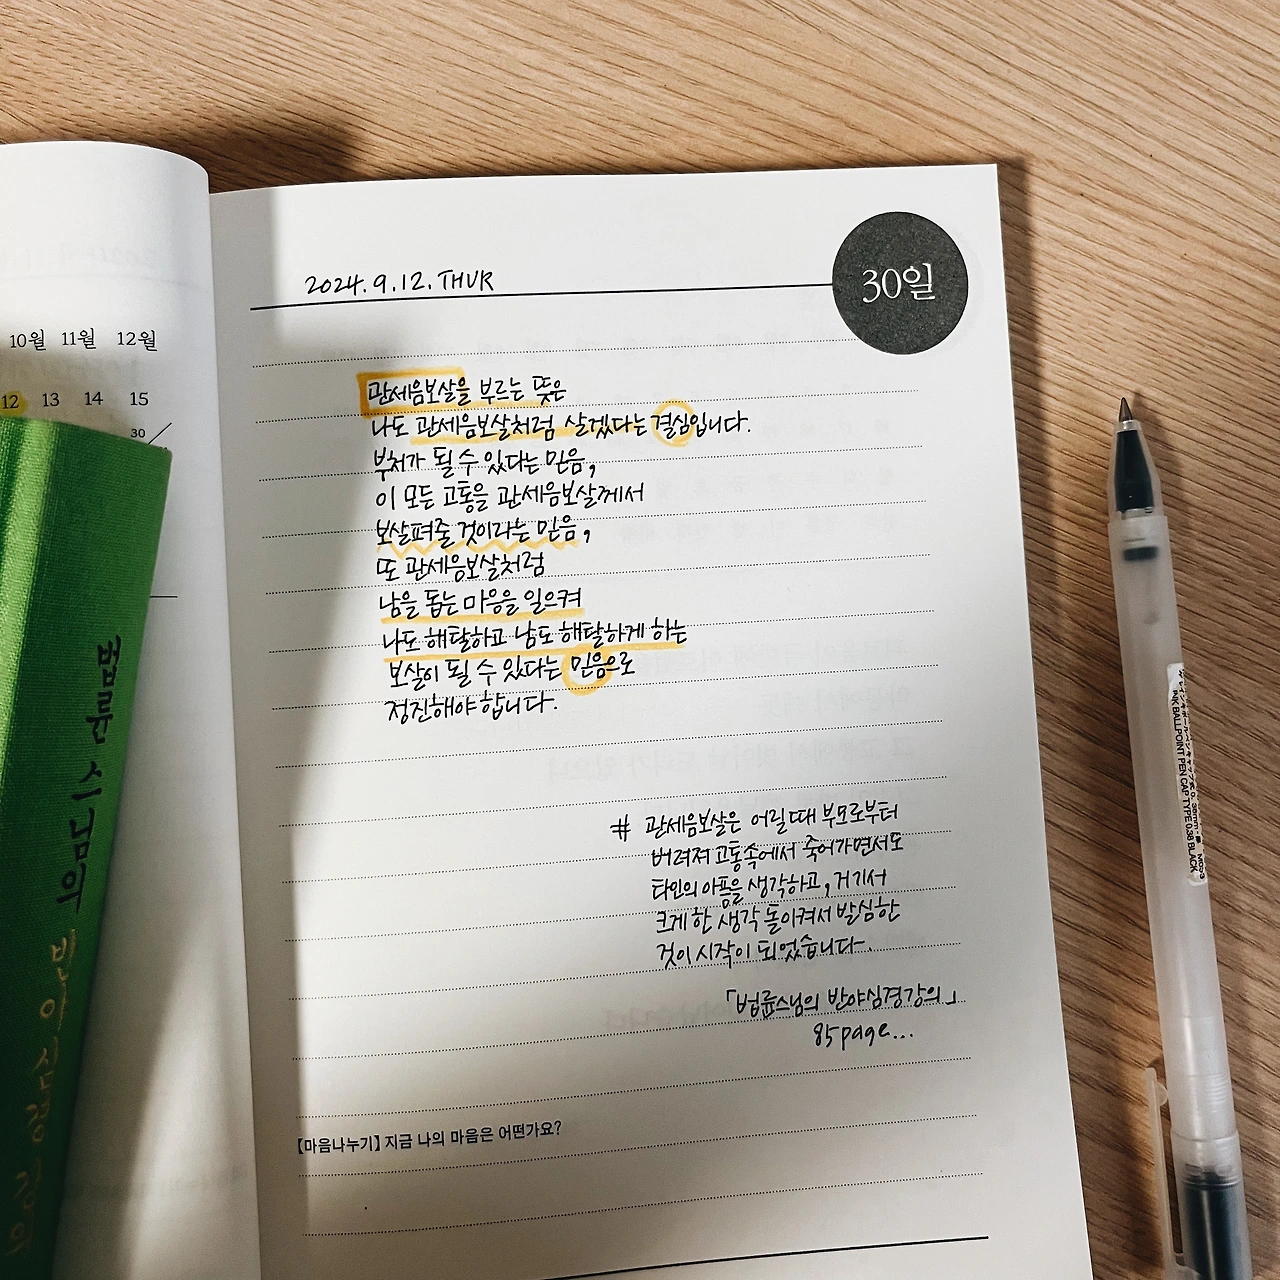 2024.9.12.THUR
30일
관세음보살을 부르는 뜻은
나도 관세음보살처럼 살겠다는 결심입니다.
부처가 될 수 있다는 믿음,
이 모든 고통을 관세음보살께서
보살펴줄 것이라는 믿음,
또 관세음보살처럼
남을 돕는 마음을 일으켜
나도 해탈하고 남도 해탈하게 하는
보살이 될 수 있다는 믿음으로
정진해야 합니다.
# 관세음보살은 어릴때 부모로부터
버려져 고통속에서 죽어가면서도
타인의 아픔을 생각하고, 거기서
크게 한 생각 돌이켜서 발심한
것이 시작이 되었습니다.
「법륜스님의 반야심경강의」
85page...
【마음나누기】 지금 나의 마음은 어떤가요?
10월 11월 12월
12 13 14 15
30
법륜 스님의 반야심경 강의
INK BALLPOINT PEN CAP TYPE 0.38 BLACK